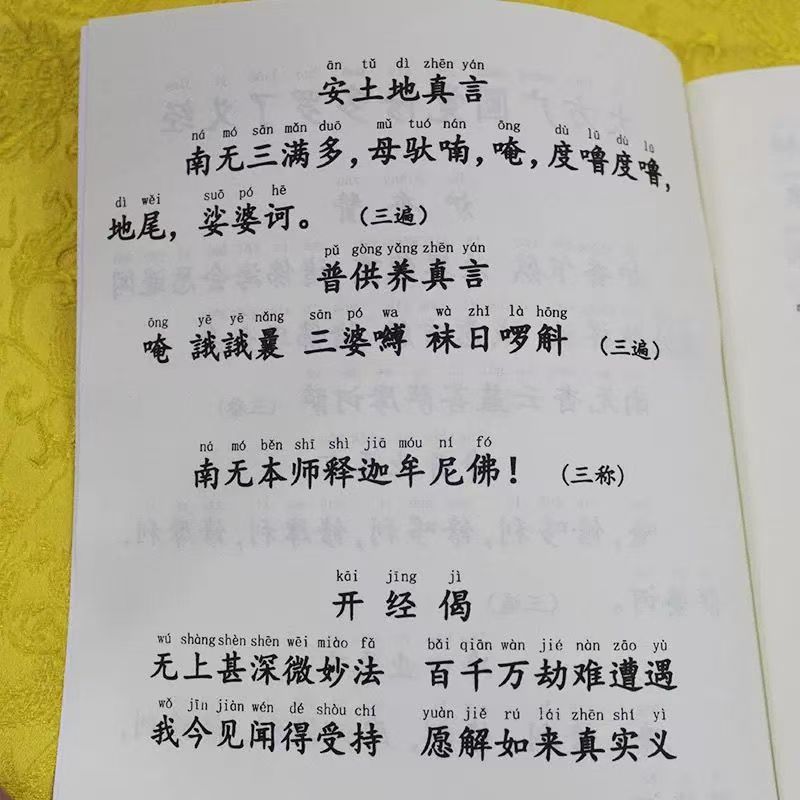 ān tǔ dì zhēn yán
安土地真言
ná mó sān mǎn duō mǔ tuó nán ōng dù lū dù lū
南无三满多，母驮喃，唵，度噜度噜，
dì wěi suō pó hē
地尾，娑婆诃。（三遍）
pǔ gòng yǎng zhēn yán
普供养真言
ōng yē yē nǎng sān pó wa wà zhī là hōng
唵 誐誐曩 三婆嚩 袜日啰斛（三遍）
ná mó běn shī shì jiā móu ní fó
南无本师释迦牟尼佛！（三称）
kāi jīng jì
开经偈
wú shàng shèn shēn wēi miào fǎ bǎi qiān wàn jié nàn zāo yù
无上甚深微妙法 百千万劫难遭遇
wǒ jīn jiàn wén dé shòu chí yuàn jiě rú lái zhēn shí yì
我今见闻得受持 愿解如来真实义